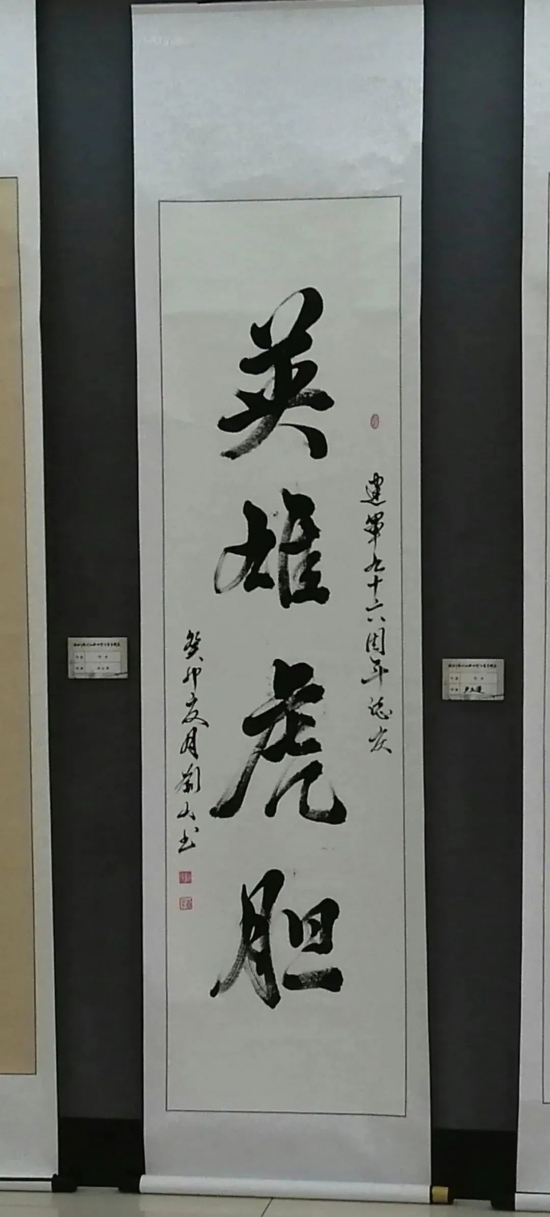 建军九十六周年志庆
英雄虎胆
癸卯夏月刘大书